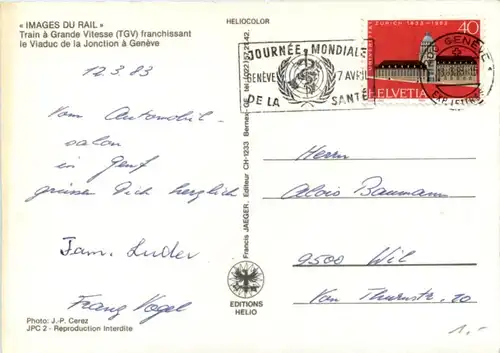 « IMAGES DU RAIL »
Train à Grande Vitesse (TGV) franchissant
le Viaduc de la Jonction à Genève
12.3.83
Vom Automobil-
salon
in Genf
grüssen Dich herzlich
Fam. Luder
Franz Vogel
Photo: J.-P. Cerez
JPC 2 - Reproduction Interdite
HELIOCOLOR
Francis JAEGER, Editeur CH-1233 Bernex-GE
EDITIONS
HELIO
JOURNÉE MONDIALE
GENÈVE 7 AVRIL
DE LA SANTÉ
ZÜRICH 1833-1983
40
HELVETIA
GENÈVE
Herrn
Alois Baumann
9500 Wil
Von Thurnstr. 20
1.-